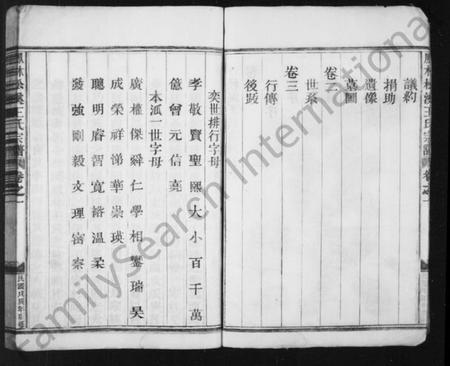 鳳林松溪王氏宗譜
卷之一
議約
捐助
遺像
墓圖
卷二
世系
卷三
行傳
後跋
奕世排行字母
孝敬賢聖熙大小百千萬
億曾元信堯
本派一世字母
廣權傑舜仁學相鑒瑞昊
成榮祥悌華崇瑛
聰明睿智寬裕溫柔
發強剛毅文理密察
鳳林松溪王氏宗譜
卷之一
FamilySearch International